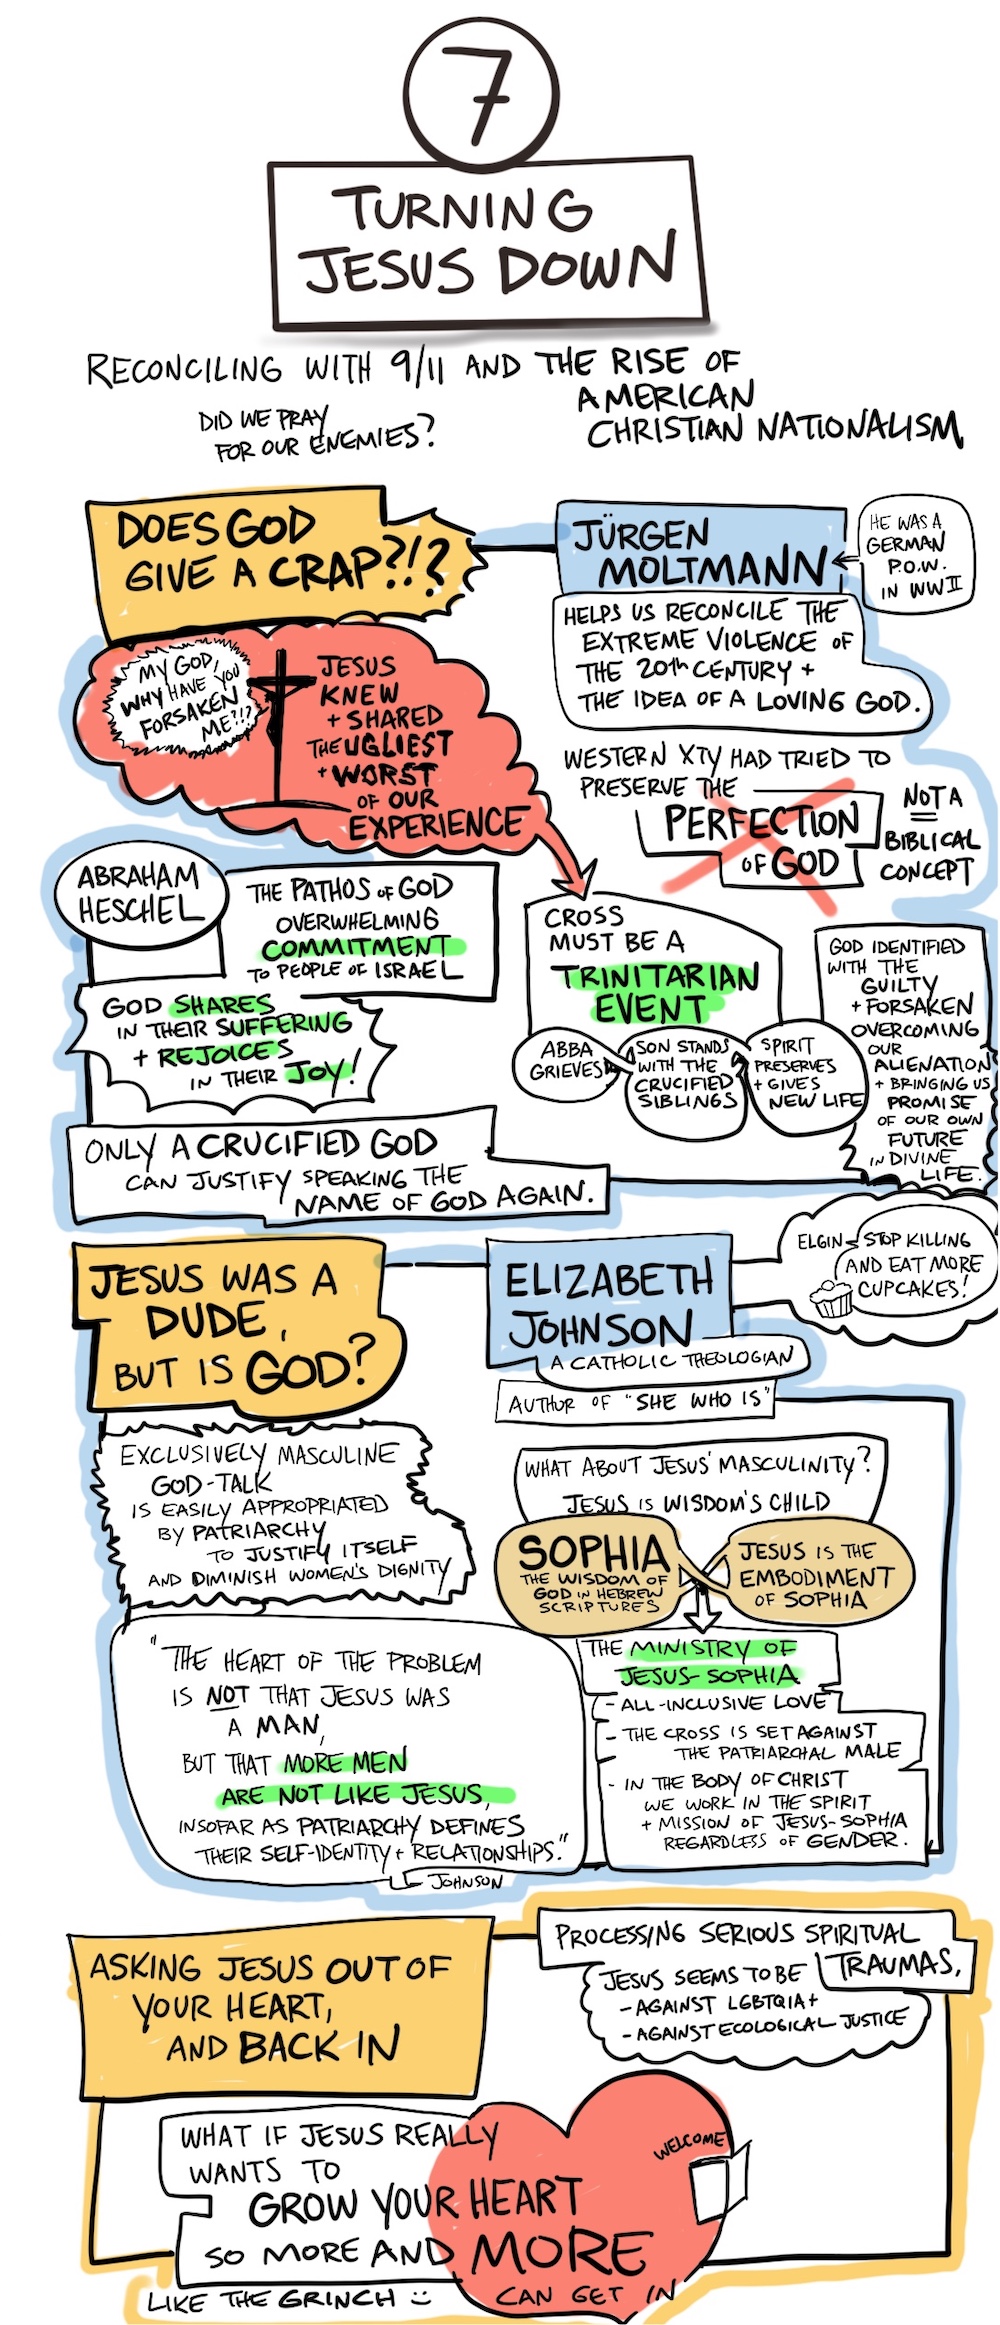 7
TURNING
JESUS DOWN
RECONCILING WITH 9/11 AND THE RISE OF
AMERICAN
CHRISTIAN NATIONALISM
DID WE PRAY
FOR OUR ENEMIES?
DOES GOD
GIVE A CRAP?!?
JÜRGEN
MOLTMANN
HE WAS A
GERMAN
P.O.W.
IN WW II
HELPS US RECONCILE THE
EXTREME VIOLENCE OF
THE 20th CENTURY +
THE IDEA OF A LOVING GOD.
MY GOD,
WHY HAVE YOU
FORSAKEN
ME?!?
JESUS
KNEW
+ SHARED
THE UGLIEST
+ WORST
OF OUR
EXPERIENCE
WESTERN XTY HAD TRIED TO
PRESERVE THE
PERFECTION
OF GOD
NOT A
BIBLICAL
CONCEPT
ABRAHAM
HESCHEL
THE PATHOS OF GOD
OVERWHELMING
COMMITMENT
TO PEOPLE OF ISRAEL
GOD SHARES
IN THEIR SUFFERING
+ REJOICES
IN THEIR JOY!
CROSS
MUST BE A
TRINITARIAN
EVENT
ABBA
GRIEVES
SON STANDS
WITH THE
CRUCIFIED
SIBLINGS
SPIRIT
PRESERVES
+ GIVES
NEW LIFE
GOD IDENTIFIED
WITH THE
GUILTY
+ FORSAKEN
OVERCOMING
OUR
ALIENATION
+ BRINGING US
PROMISE
OF OUR OWN
FUTURE
IN DIVINE
LIFE.
ONLY A CRUCIFIED GOD
CAN JUSTIFY SPEAKING THE
NAME OF GOD AGAIN.
JESUS WAS A
DUDE,
BUT IS GOD?
ELIZABETH
JOHNSON
A CATHOLIC THEOLOGIAN
AUTHOR OF "SHE WHO IS"
ELGIN
STOP KILLING
AND EAT MORE
CUPCAKES!
EXCLUSIVELY MASCULINE
GOD-TALK
IS EASILY APPROPRIATED
BY PATRIARCHY
TO JUSTIFY ITSELF
AND DIMINISH WOMEN'S DIGNITY
WHAT ABOUT JESUS' MASCULINITY?
JESUS IS WISDOM'S CHILD
SOPHIA
THE WISDOM OF
GOD IN HEBREW
SCRIPTURES
JESUS IS THE
EMBODIMENT
OF SOPHIA
"THE HEART OF THE PROBLEM
IS NOT THAT JESUS WAS
A MAN,
BUT THAT MORE MEN
ARE NOT LIKE JESUS,
INSOFAR AS PATRIARCHY DEFINES
THEIR SELF-IDENTITY + RELATIONSHIPS."
JOHNSON
THE MINISTRY OF
JESUS-SOPHIA
- ALL-INCLUSIVE LOVE
- THE CROSS IS SET AGAINST
THE PATRIARCHAL MALE
- IN THE BODY OF CHRIST
WE WORK IN THE SPIRIT
+ MISSION OF JESUS-SOPHIA
REGARDLESS OF GENDER.
ASKING JESUS OUT OF
YOUR HEART,
AND BACK IN
PROCESSING SERIOUS SPIRITUAL
TRAUMAS,
JESUS SEEMS TO BE
- AGAINST LGBTQIA+
- AGAINST ECOLOGICAL JUSTICE
WHAT IF JESUS REALLY
WANTS TO
GROW YOUR HEART
SO MORE AND MORE
CAN GET IN
WELCOME
LIKE THE GRINCH :)